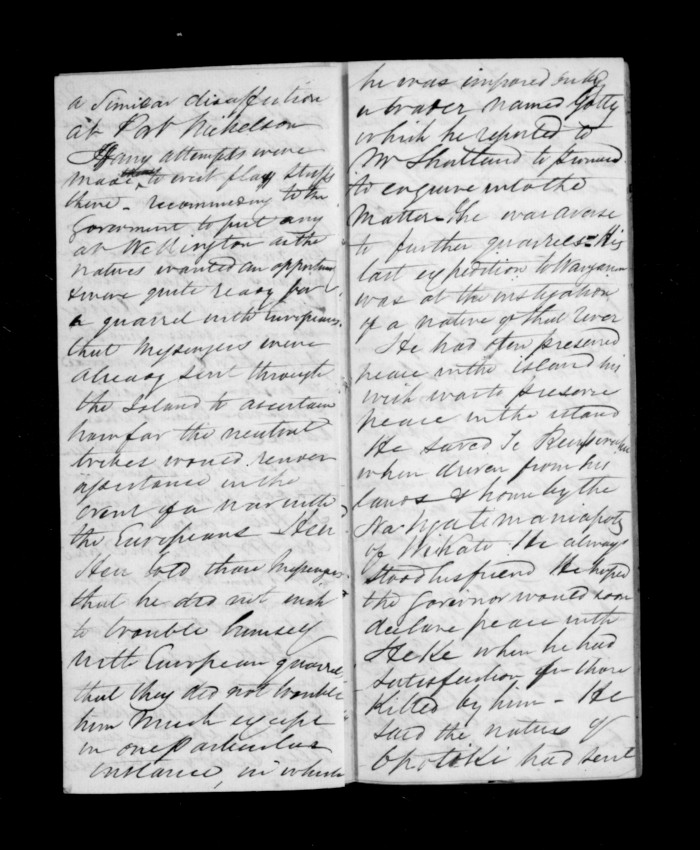 a Similar disaffection
at Port Nickelson
If any attempts were
made to erect flag staffs
there - recommending to the
Goverment to put any
at Wellington as the
natives wanted an opportun
& were quite ready for
a quarrel with Europeans.
that Messengers were
already sent through
the Island to ascertain
how far the neutral
tribes would render
assistance in the
event of a war with
the Europeans - Heu
Heu told these Messengers
that he did not wish
to trouble himself
with European quarrels
that they did not trouble
him much except
in one particular
instance, in which
he was imposed on by
a trader named Gotty
which he reported to
Mr Shortland to
to enquire into the
Matter - He was averse
to further quarrels - His
last expedition to Wanganui
was at the instigation
of a native of that River
He had often preserved
peace in the island his
wish was to preserve
peace in the island
He saved Te
when driven from his
lands & home by the
Na Ngatimaniapoto
of Wikato He always
stood his friend He hoped
the Governor would soon
declare peace with
Heke when he had
satisfaction for those
Killed by him - He
said the natives of
Opotiki had sent